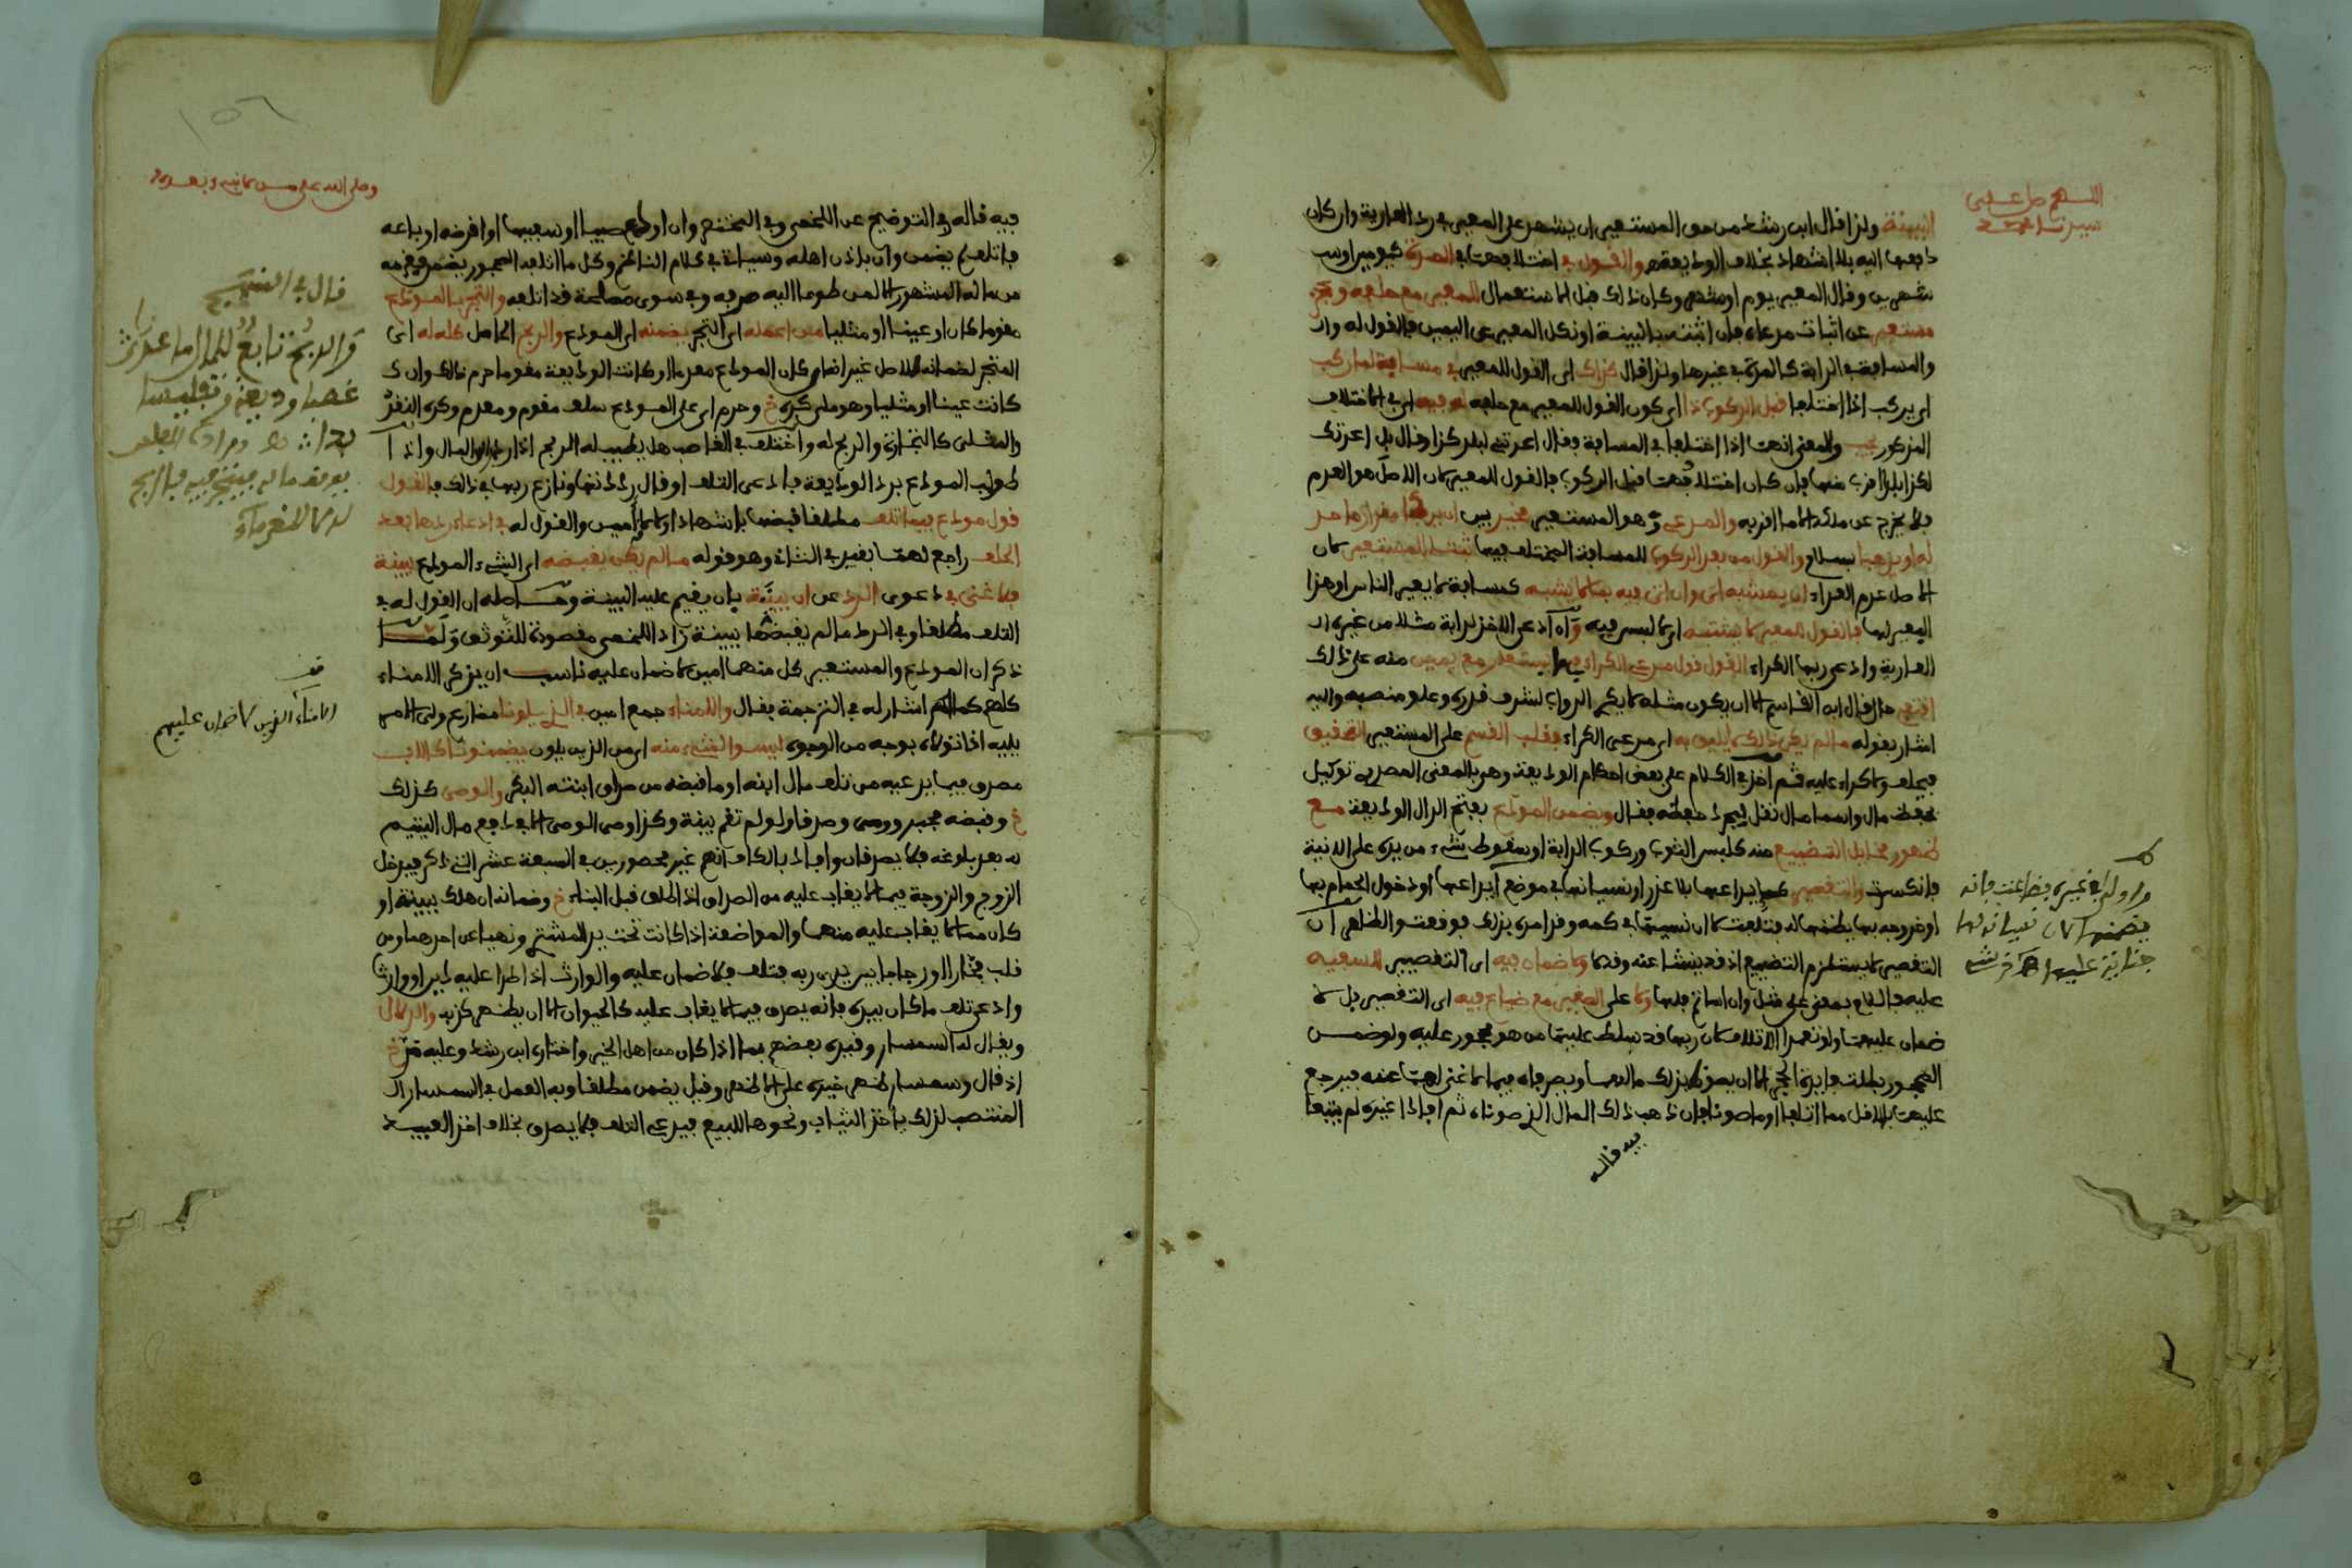 اللهم صل على
سيدنا محمد
البينة ولذا قال ابن رشد من حق المستعير ان يشهد على المعير في رد العارية وان كان
دفعها اليه بلا اشهاد بخلاف الوديعة والقول في المدة كيوم او
شهرين وقال المعير يوم او شهر وكان ذلك قبل الاستعمال للمعير مع حلفه وعجز
مستعير عن اثبات مدعاه فان اثبته بالبينة او نكل المعير عن اليمين فالقول له وان
والمسافة في الدابة كالمدة في غيرها ولذا قال كذاك اي القول للمعير في مسافة لما ركب
اي يركب اذا اختلفا قبل الركوب ذا اي كون القول للمعير مع حلفه له فيه اي في الاختلاف
المذكور يجب والمعنى انهما اذا اختلفا في المسافة فقال اعرتني لبلد كذا وقال بل اعرتك
لكذا بلدا اقرب منها فان كان اختلافهما قبل الركوب فالقول للمعير لان الاصل هو العدم
فلا يخرج عن ملكه الا ما اقر به والمدعي وهو المستعير مخير بين ان يركبا مقدار ما حد
له او يدعها بسلام والقول من بعد الركوب للمسافة المختلف فيها ثبت للمستعير لان
الاصل عدم العداء ان بمشبه اتى وان اتى فيه بما لا يشبه كمسافة لا يعير الناس او هذا
المعير لها فالقول للمعير لا يشتبه اي لا لبس فيه وان ادعى الاخذ لدابة مثلا من غيره ان
العارية وادعى ربها الكراء القول قول مدعي الكراء فيما يستعار مع يمين منه على ذلك
قال ابن القاسم الا ان يكون مثله لا يكري الدواب لشرف قدره وعلو منصبه واليه
اشار بقوله ما لم يكن ذلك لا يليق به اي مدعي الكراء فقلب القسم على المستعير التحقيق
فيحلف ولا كراء عليه ثم اخذ في الكلام على بعض احكام الوديعة وهي بالمعنى المصدري توكيل
بحفظ مال واسما مال نقل لمجرد حفظه فقال ويضمن المودع بفتح الدال الوديعة مع
ظهور مخايل التضييع منه كلبس الثوب وركوب الدابة او سقوط شيء من يده على الانية
فانكسرت والتقصير كايداعها بلا عذر او نسيانها في موضع ايداعها او دخول الحمام بها
او خروجه بها يظنها له فتلفت لا ان نسيها في كمه وقد امره بذلك فوقعت والظاهر ان
التقصير لا يستلزم التضييع اذ قد ينشا عنه وقدما ولا ضمان فيه اي التقصير للسفيه
عليه فاللام بمعنى على مثل وان اساتم فلها ولا على الصغير مع ضياع فيه اي التقصير بل لا
ضمان عليهما ولو تعمدا الاتلاف لان ربها قد سلط عليها من هو محجور عليه ولو ضمن
المحجور بطلت فايدة الحجر الا ان يصونا بذلك مالهما ويصرفاه فيما لا غنى لهما عنه فيرجع
عليهما بالاقل مما اتلفا او ما صونا فان ذهب ذلك المال الذي صوناه ثم افادا غيره لم يتبعا
فيه قاله
وصلى الله على من لا نبيء بعده
قال في المنهج
والربح تابع للمال ما عدا
غصبا وديعة وتفليسا
بدا
الامناء الذين لا ضمان عليهم
فيه قاله في التوضيح عن اللخمي وفي المختصر وان اودع صبيا او سفيها او اقرضه او باعه
فاتلف لم يضمن وان باذن اهله وسياتي في كلام الناظم وكل ما اتلفه المحجور يضمن غرمه
من ماله المشهور الا لمن طوعا اليه صرفه وفي سوى مصلحة قد اتلفه والتجر بالمودع
مقوما كان او عينا او مثليا من اعمله اي التجر يضمنه اي المودع والربح الحاصل كله له اي
المتجر لضمانه الاصل غير انه ان كان المودع معدما او كانت الوديعة مقوما حرم ذلك وان
كانت عينا او مثليا وهو ملي كره خ وحرم اي على المودع سلف مقوم ومعدم وكره النقد
والمثلي كالتجارة والربح له واختلف في الغاصب هل يطيب له الربح اذا رد المال واذا
طولب المودع برد الوديعة فادعى التلف او قال رددتها ونازع ربها في ذلك فالقول
قول مودع فيما تلف مطلقا قبضها باشهاد او لا لانه امين والقول له في ادعاء ردها بعد
الحلف راجع لهما بقيد في الثاني وهو قوله ما لم يكن يقبضه اي الشيء المودع ببينة
فلا غنى في دعوى الرد عن ان بينة بان يقيم عليه البينة وحاصله ان القول له في
التلف مطلقا وفي الرد ما لم يقبضها ببينة زاد اللخمي مقصودة للتوثق ولما
ذكر ان المودع والمستعير كل منهما امين لا ضمان عليه ناسب ان يذكر الامناء
كلهم كما اشار له في الترجمة فقال والامناء جمع امين في الذي يلونا مضارع ولي الامر
يليه اذا تولاه بوجه من الوجوه ليسوا لشيء منه اي من الذين يلون يضمنونا كالاب
مصدق فيما يدعيه من تلف مال ابنه او ما قبضه من صداق ابنته البكر والوصي كذلك
خ وقبضه مجبر ووصي وصدقا ولو لم تقم بينة وكذا وصي الوصي الا في دفع مال اليتيم
له بعد بلوغه فلا يصدقان وافاد بالكاف انهم غير محصورين في السبعة عشر التي ذكر فيدخل
الزوج والزوجة فيما لا يغاب عليه من الصداق اذا طلق قبل البناء خ وضمانه ان هلك ببينة او
كان مما لا يغاب عليه منهما والمواضعة اذا كانت تحت يد المشتري ونهيا عن احدهما ومن
قلب فخارا او زجاجا بيد ربه فتلف فلا ضمان عليه والوارث اذا طرا عليه دين او وارث
وادعى تلف ما كان بيده فانه يصدق فيما لا يغاب عليه كالحيوان الا ان يظهر كذبه والدلال
ويقال له السمسار وقيده بعضهم بما اذا كان من اهل الخير واختاره ابن رشد وعليه مر خ
اذ قال وسمسار ظهر خيره على الاظهر وقيل يضمن مطلقا وبه العمل في السمسار
المنتصب لذلك ياخذ الثياب ونحوها للبيع فيدعي التلف فلا يصدق بخلاف اخذ العبيد